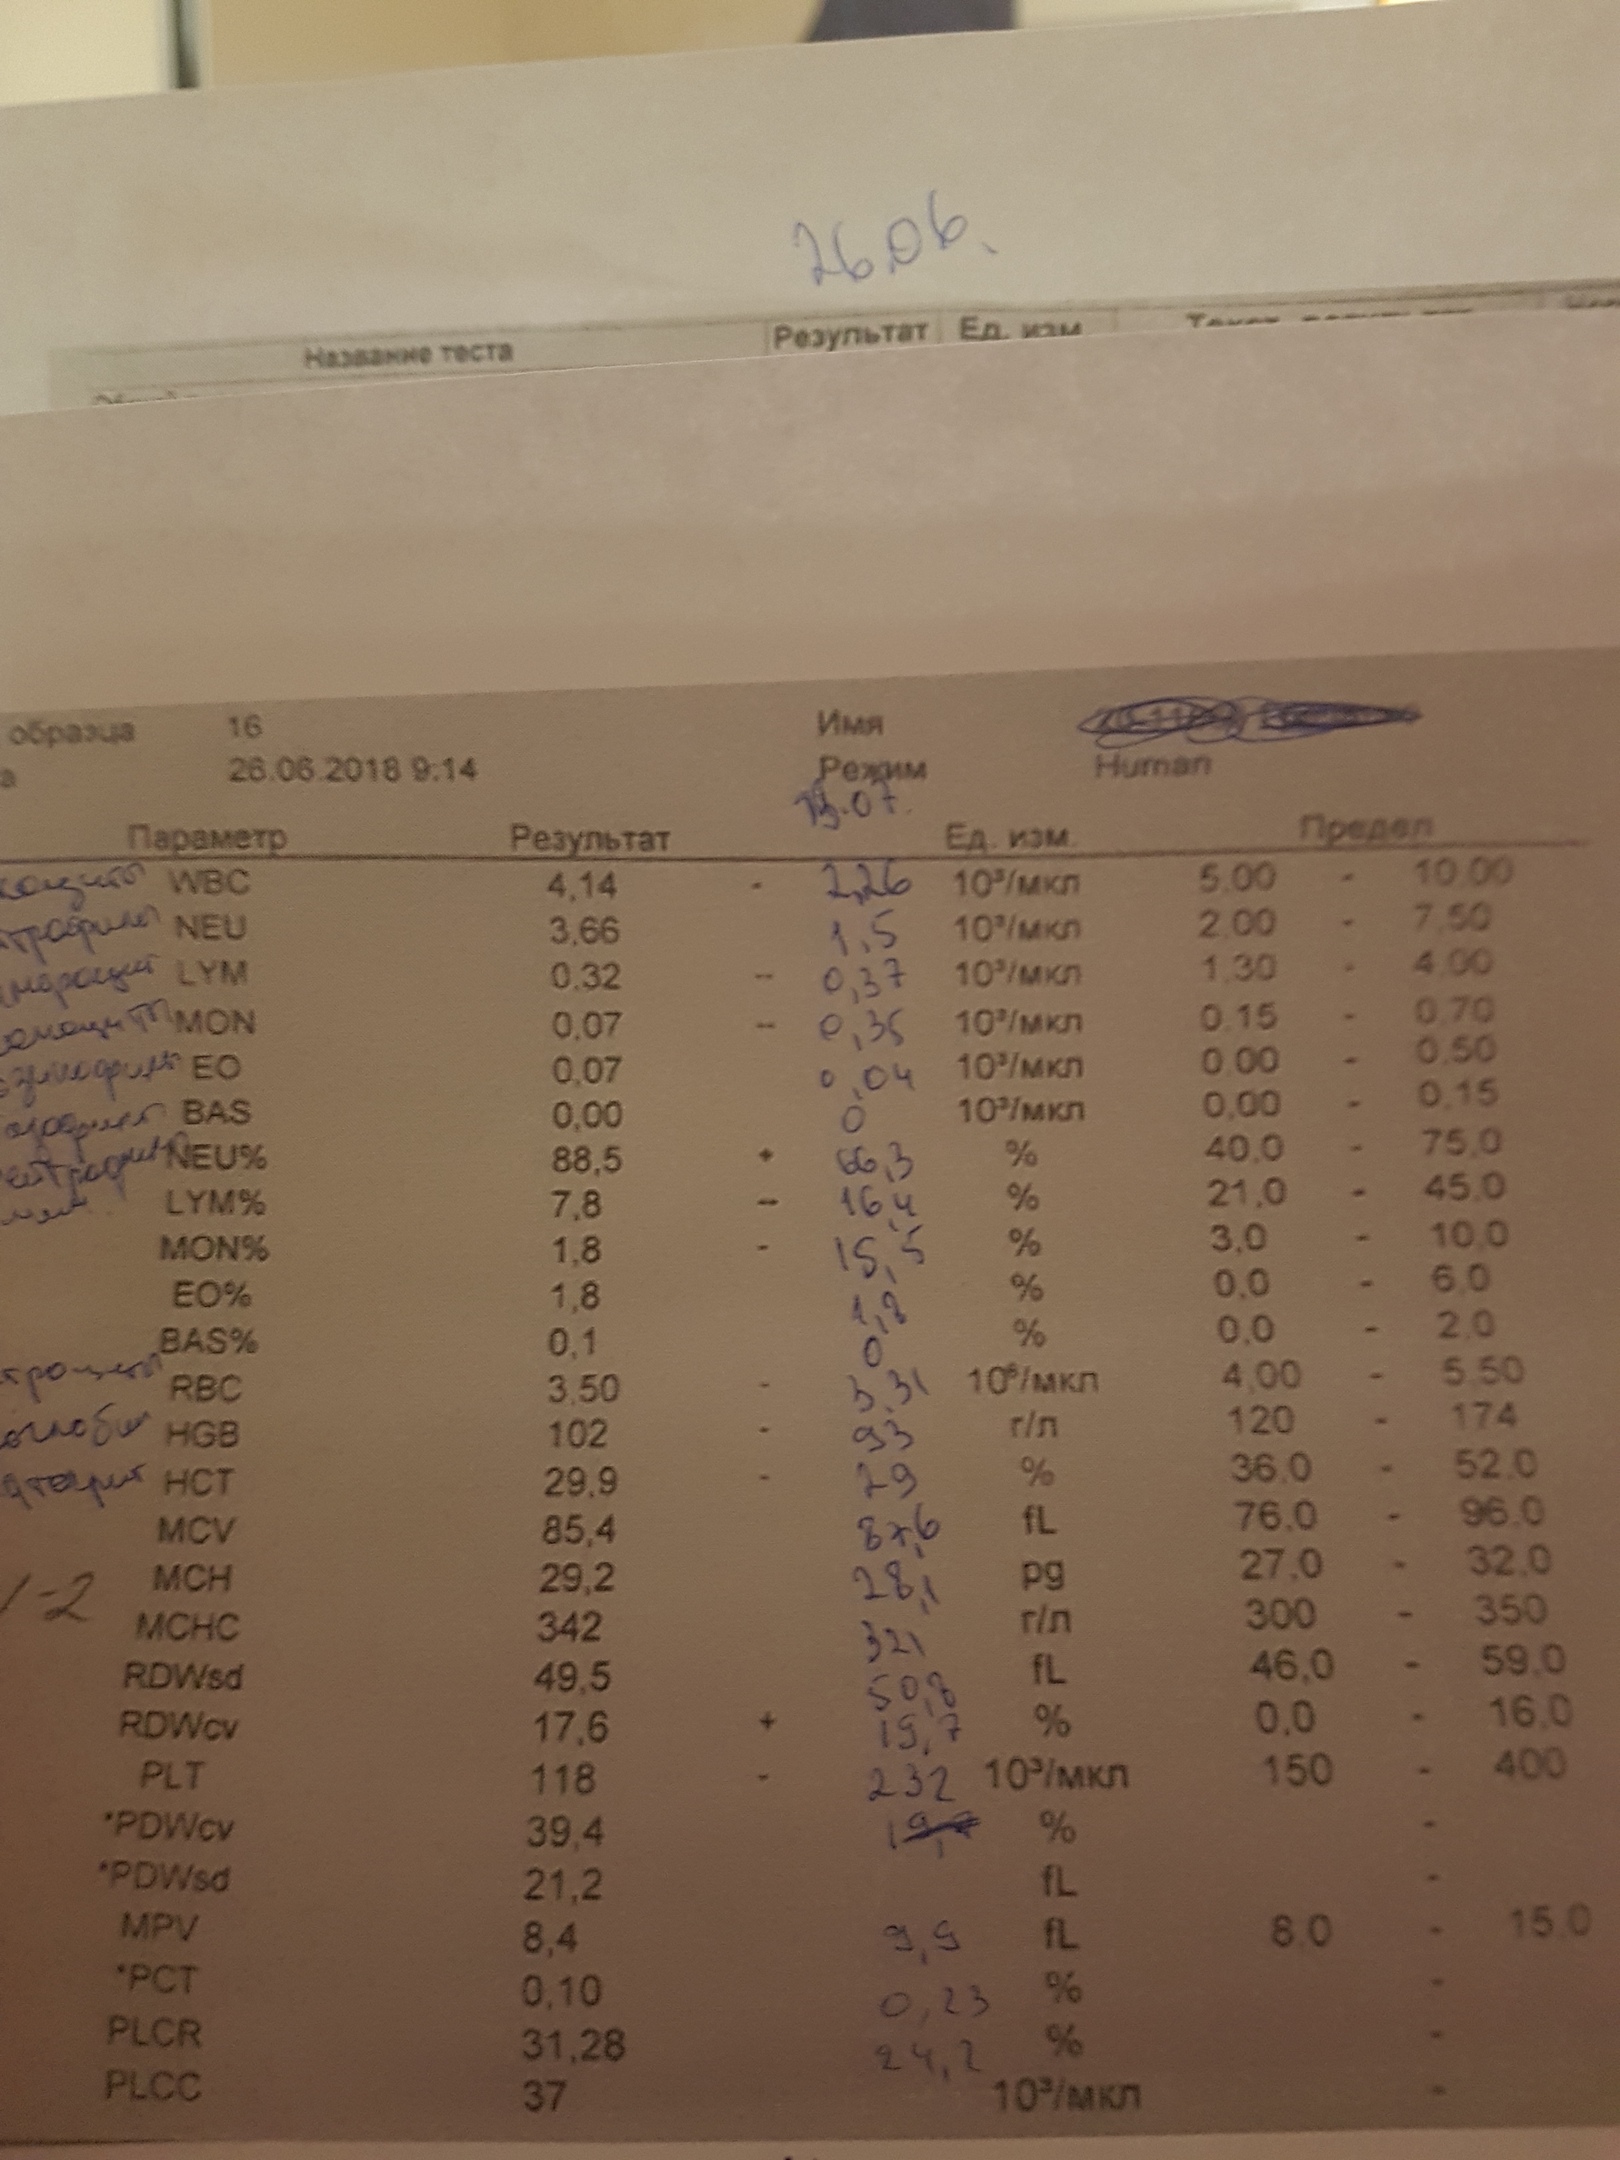 26.06.
Название теста Результат Ед. изм
образца 16 Имя
а 26.06.2018 9:14 Режим Human
13.07.
Параметр Результат Ед. изм. Предел
WBC 4,14 - 2,26 10³/мкл 5.00 - 10.00
NEU 3,66 1,5 10³/мкл 2.00 - 7,50
LYM 0.32 -- 0,37 10³/мкл 1,30 - 4.00
MON 0,07 -- 0,35 10³/мкл 0.15 - 0.70
EO 0,07 0,04 10³/мкл 0.00 - 0.50
BAS 0,00 0 10³/мкл 0,00 - 0,15
NEU% 88,5 + 66,3 % 40,0 - 75,0
LYM% 7,8 -- 16,4 % 21,0 - 45,0
MON% 1,8 - 15,5 % 3,0 - 10,0
EO% 1,8 1,8 % 0,0 - 6,0
BAS% 0,1 0 % 0,0 - 2,0
RBC 3,50 - 3,31 10⁶/мкл 4,00 - 5,50
HGB 102 - 93 г/л 120 - 174
HCT 29,9 - 29 % 36.0 - 52.0
MCV 85,4 87,6 fL 76.0 - 96.0
MCH 29,2 28,1 pg 27.0 - 32.0
1-2
MCHC 342 321 г/л 300 - 350
RDWsd 49,5 50,8 fL 46,0 - 59,0
RDWcv 17,6 + 19,7 % 0,0 - 16,0
PLT 118 - 232 10³/мкл 150 - 400
*PDWcv 39,4 % -
*PDWsd 21,2 fL -
MPV 8,4 9,9 fL 8.0 - 15.0
*PCT 0,10 0,23 % -
PLCR 31,28 24,2 % -
PLCC 37 10³/мкл -